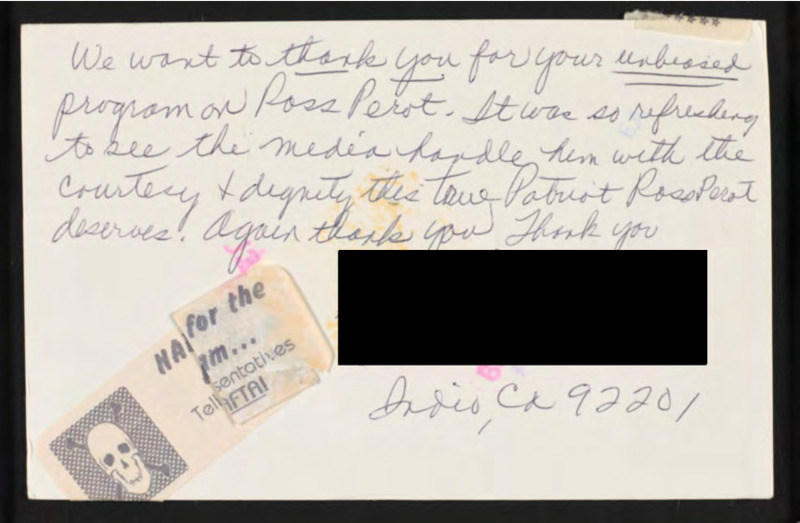 *****
We want to thank you for your unbiased
program on Ross Perot. It was so refreshing
to see the media handle him with the
courtesy & dignity this true Patriot Ross Perot
deserves. Again thank you Thank you
for the
NA
am...
sentatives
Tell
AFTA!
Indio, Ca 92201